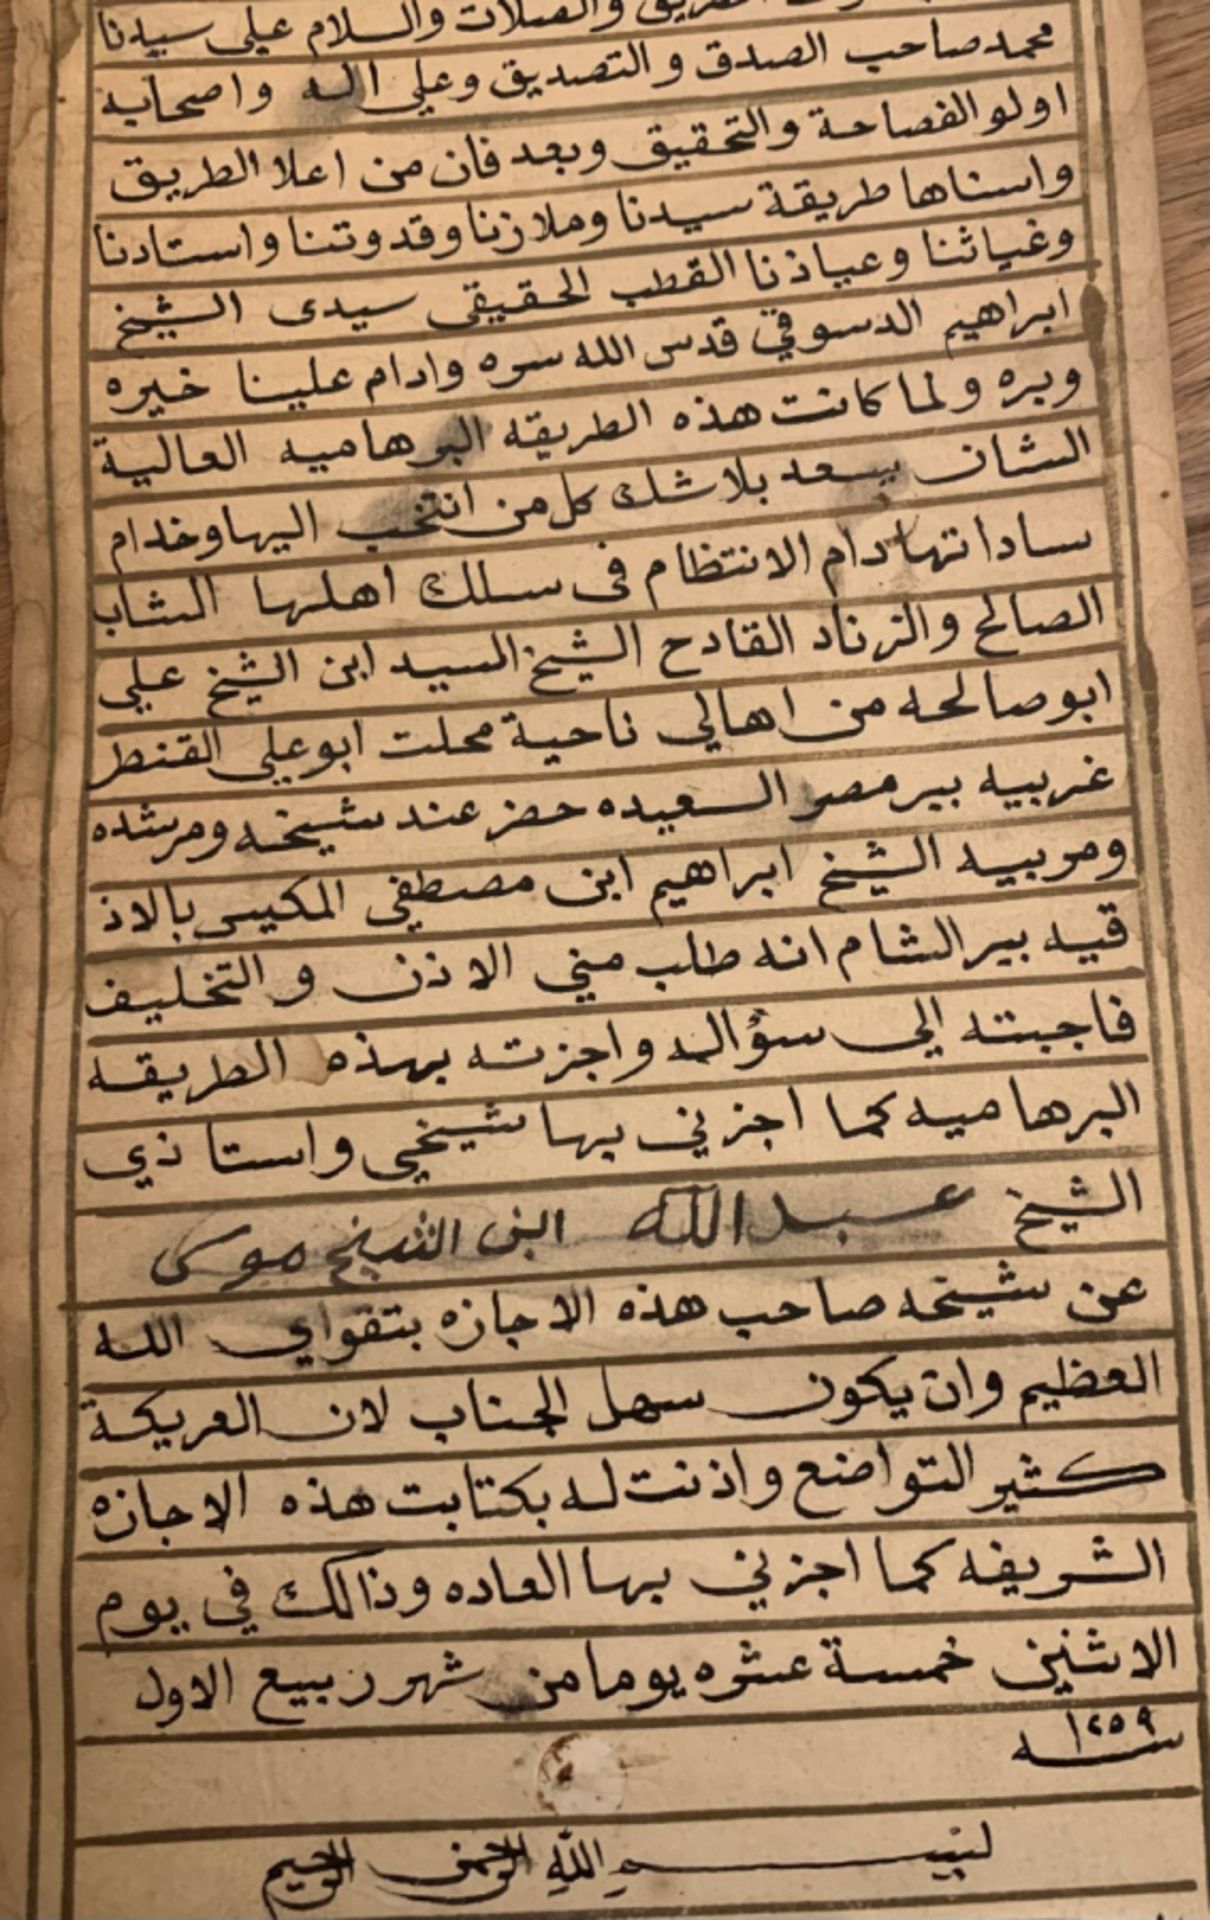 الطريق والصلات والسلام علي سيدنا
محمد صاحب الصدق والتصديق وعلي اله واصحابه
اولو الفصاحة والتحقيق وبعد فان من اعلا الطريق
واسناها طريقة سيدنا وملازنا وقدوتنا واستادنا
وغياثنا وعياذنا القطب الحقيقي سيدى الشيخ
ابراهيم الدسوقي قدس الله سره وادام علينا خيره
وبره ولما كانت هذه الطريقه البرهاميه العالية
الشان يسعد بلا شك كل من انتخب اليها وخدام
ساداتها دام الانتظام في سلك اهلها الشاب
الصالح والزناد القادح الشيخ السيد ابن الشيخ علي
ابو صالحه من اهالي ناحية محلت ابو علي القنطر
غربيه ببر مصر السعيده حضر عند شيخه ومرشده
ومربيه الشيخ ابراهيم ابن مصطفي المكيسى بالاذ
قيه ببر الشام انه طلب مني الاذن والتخليف
فاجبته الي سؤاله واجزته بهذه الطريقه
البرهاميه كما اجزني بها شيخي واستاذي
الشيخ عبد الله ابن الشيخ موسى
عن شيخه صاحب هذه الاجازه بتقواي الله
العظيم وان يكون سهل الجناب لان العريكة
كثير التواضع واذنت له بكتابت هذه الاجازه
الشريفه كما اجزني بها العاده وذالك في يوم
الاثنين خمسة عشره يوما من شهر ربيع الاول
سنه ١٢٥٩
بسم الله الرحمن الرحيم